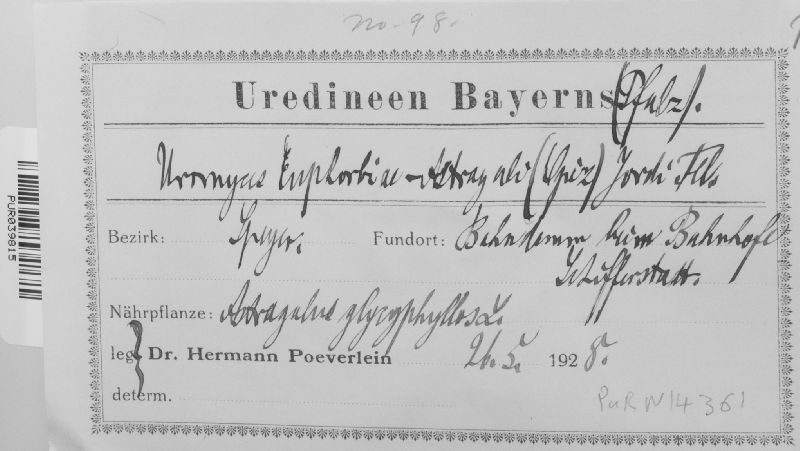 no. 98.
Uredineen Bayerns (Pfalz).
Uromyces Euphorbiae-Astragali (Opiz) Jordi
Bezirk: Speyer. Fundort: Bahndamm beim Bahnhofe
Schifferstadt.
Nährpflanze: Astragalus glycyphyllos L.
leg. Dr. Hermann Poeverlein 26. 5. 1928.
determ.
PUR N14361
PUR039815